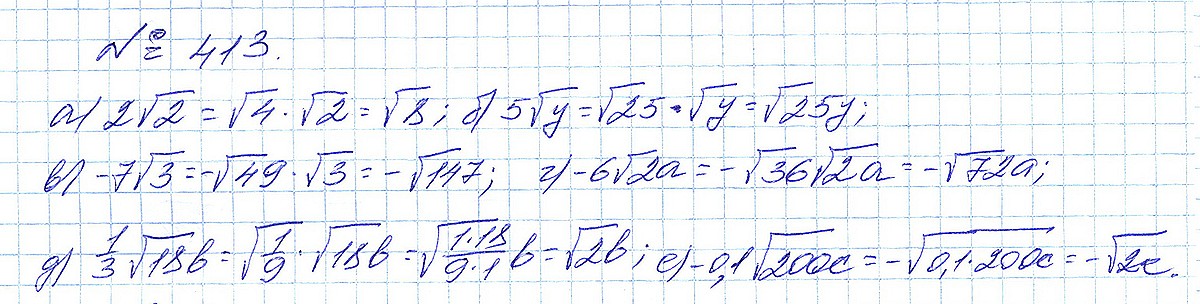 № 413.
а) 2√2 = √4 · √2 = √8; б) 5√y = √25 · √y = √25y;
в) -7√3 = -√49 · √3 = -√147; г) -6√2a = -√36√2a = -√72a;
д) 1/3 √18b = √1/9 · √18b = √(1·18/9·1) b = √2b; е) -0,1√200c = -√0,1·200c = -√2c.